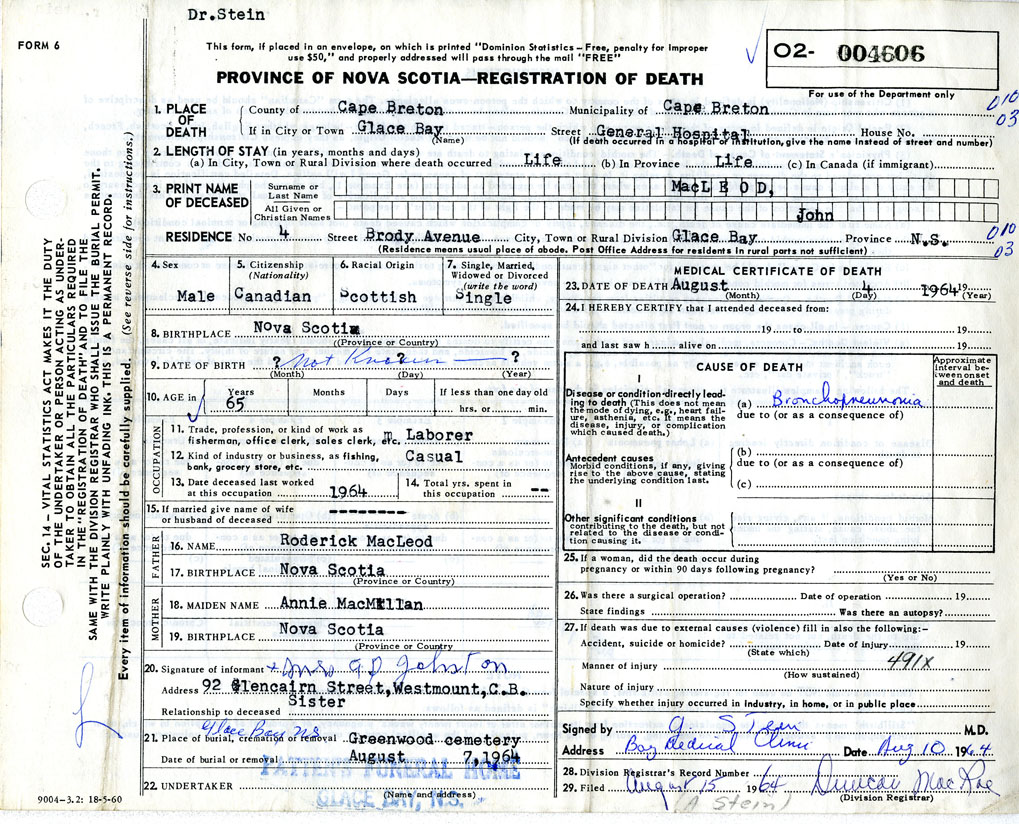 Dr.Stein
FORM 6
This form, if placed in an envelope, on which is printed "Dominion Statistics—Free, penalty for improper
use $50," and properly addressed will pass through the mail "FREE"
O2- 004606
For use of the Department only
PROVINCE OF NOVA SCOTIA—REGISTRATION OF DEATH
010
03
1. PLACE OF DEATH
County of Cape Breton Municipality of Cape Breton
If in City or Town Glace Bay Street General Hospital House No.
(Name) (If death occurred in a hospital or institution, give the name instead of street and number)
2. LENGTH OF STAY (in years, months and days)
(a) In City, Town or Rural Division where death occurred Life (b) In Province Life (c) In Canada (if immigrant)
3. PRINT NAME OF DECEASED
Surname or Last Name MacLEOD,
All Given or Christian Names John
RESIDENCE No 4 Street Brody Avenue City, Town or Rural Division Glace Bay Province N.S.
010
03
(Residence means usual place of abode. Post Office Address for residents in rural parts not sufficient)
4. Sex Male
5. Citizenship (Nationality) Canadian
6. Racial Origin Scottish
7. Single, Married, Widowed or Divorced (write the word) Single
8. BIRTHPLACE Nova Scotia
(Province or Country)
9. DATE OF BIRTH ? Not Known ? — ?
(Month) (Day) (Year)
10. AGE in Years 65 Months Days If less than one day old
hrs. or min.
OCCUPATION
11. Trade, profession, or kind of work as
fisherman, office clerk, sales clerk, etc. Laborer
12. Kind of industry or business, as fishing,
bank, grocery store, etc. Casual
13. Date deceased last worked
at this occupation 1964
14. Total yrs. spent in
this occupation --
15. If married give name of wife
or husband of deceased ---------
FATHER
16. NAME Roderick MacLeod
17. BIRTHPLACE Nova Scotia
(Province or Country)
MOTHER
18. MAIDEN NAME Annie MacMillan
19. BIRTHPLACE Nova Scotia
(Province or Country)
20. Signature of informant Mrs Johnston
Address 92 Glencairn Street,Westmount,C.B.
Relationship to deceased Sister
Glace Bay NS
21. Place of burial, cremation or removal Greenwood cemetery
Date of burial or removal August 7,1964
22. UNDERTAKER FUNERAL HOME
(Name and address)
GLACE BAY, N.S.
9004-3.2: 18-5-60
MEDICAL CERTIFICATE OF DEATH
23. DATE OF DEATH August 4 1964 19
(Month) (Day) (Year)
24. I HEREBY CERTIFY that I attended deceased from:
, 19 to 19
and last saw h alive on 19
CAUSE OF DEATH
Approximate interval between onset and death
I
Disease or condition directly leading to death (This does not mean
the mode of dying, e.g., heart failure, asthenia, etc. It means the
disease, injury, or complication
which caused death.)
(a) Bronchopneumonia
due to (or as a consequence of)
Antecedent causes
Morbid conditions, if any, giving
rise to the above cause, stating
the underlying condition last.
(b)
due to (or as a consequence of)
(c)
II
Other significant conditions
contributing to the death, but not
related to the disease or condition causing it.
25. If a woman, did the death occur during
pregnancy or within 90 days following pregnancy?
(Yes or No)
26. Was there a surgical operation? Date of operation 19
State findings Was there an autopsy?
27. If death was due to external causes (violence) fill in also the following:—
Accident, suicide or homicide? Date of injury 19
(State which)
491x
Manner of injury
(How sustained)
Nature of injury
Specify whether injury occurred in industry, in home, or in public place
Signed by G Stein M.D.
Address Bay Medical Clinic Date Aug 10 1964
28. Division Registrar's Record Number
29. Filed August 15 1964 Duncan MacRae
(Division Registrar)
(A Stein)
SEC. 14 — VITAL STATISTICS ACT MAKES IT THE DUTY
OF THE UNDERTAKER OR PERSON ACTING AS UNDER-
TAKER TO OBTAIN ALL THE PARTICULARS REQUIRED
IN THE "REGISTRATION OF DEATH" AND TO FILE THE
SAME WITH THE DIVISION REGISTRAR WHO SHALL ISSUE THE BURIAL PERMIT.
WRITE PLAINLY WITH UNFADING INK. THIS IS A PERMANENT RECORD.
Every item of information should be carefully supplied. (See reverse side for instructions.)